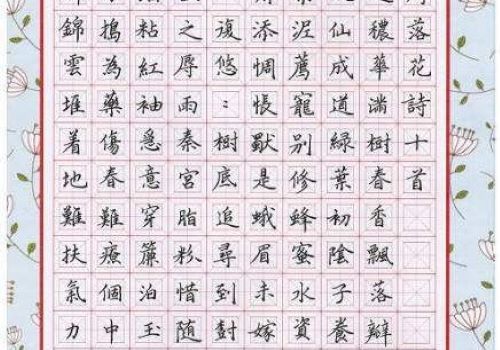 落花詩十首
穠華滿樹春香飄落瓣
仙成道綠葉初陰子養
泥薦寵別修蜂蜜水資
添惆悵厭是蛾眉未嫁
復悠：樹底追尋到封
之辱雨秦宮脂粉惜随
粘紅袖惹意穿簾泊玉
搗為藥傷春難療個中
錦雲堆着地難扶氣力